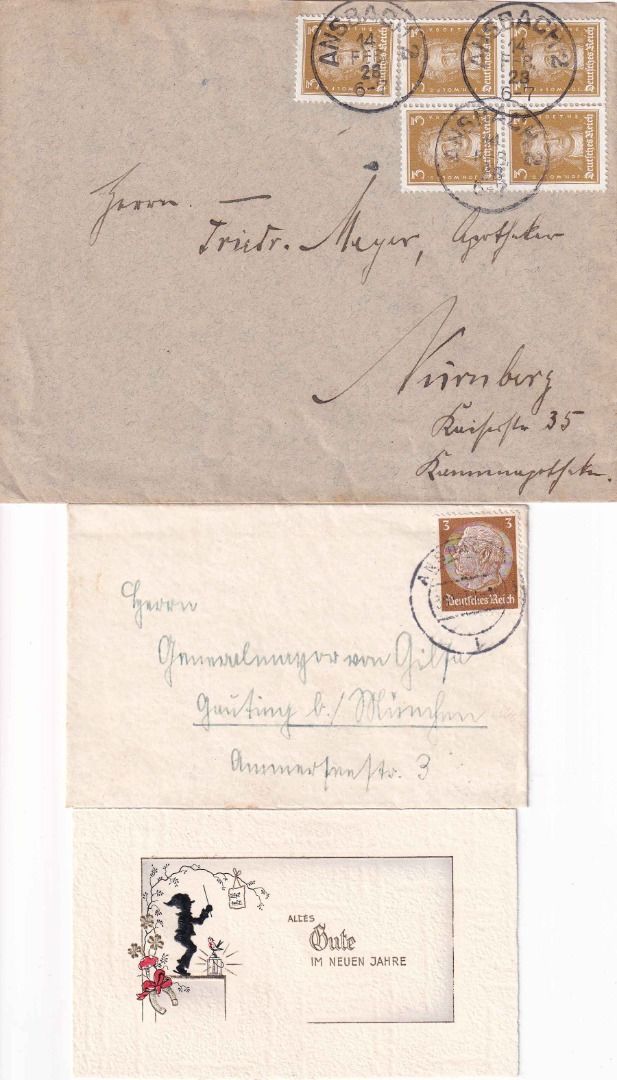 ANSBACH 2
14
FEB
28
6-7
ANSBACH 2
14
FEB
28
6-7
ANSBACH 2
3
Deutsches Reich
3
Deutsches Reich
3
Deutsches Reich
3
Deutsches Reich
3
Deutsches Reich
Herrn
Friedr. Meyer, Apotheker
Nürnberg
Kaiserstr 35
3 3
Deutsches Reich
ANSBACH
1
Herrn
Generalmayor von Gilsa
Gauting b/ München
Ammerseestr. 3
ALLES
Gute
IM NEUEN JAHRE